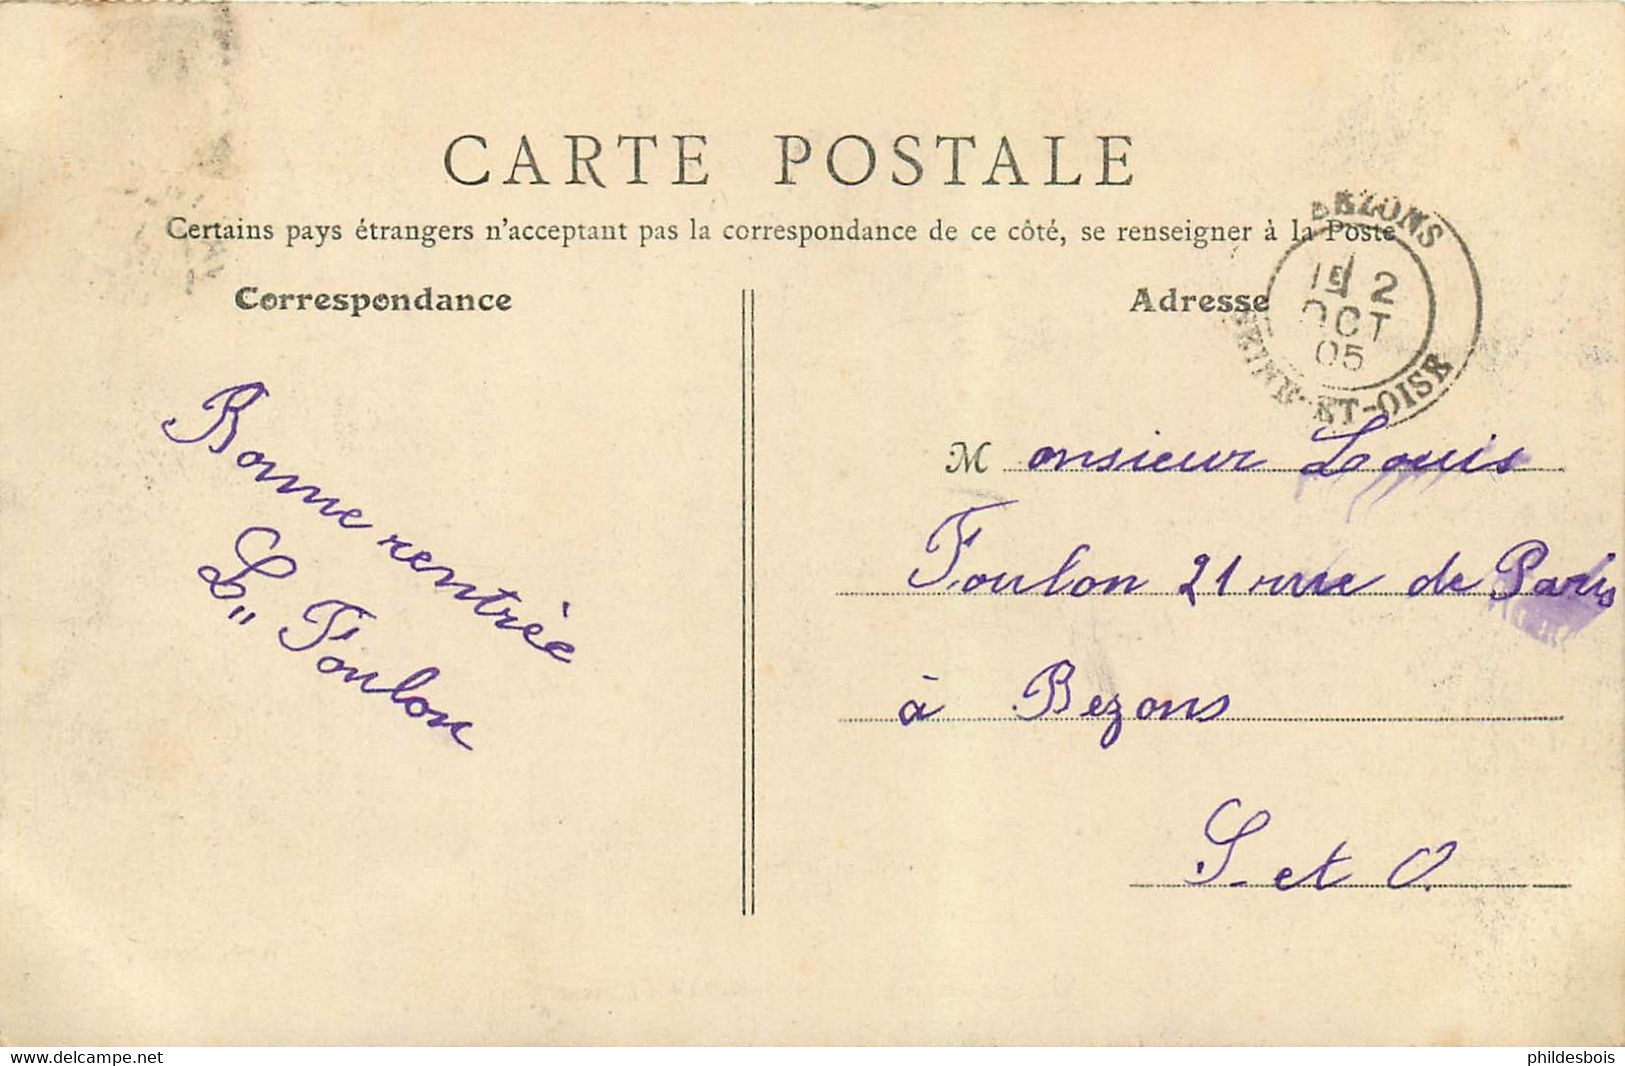 CARTE POSTALE
Certains pays étrangers n'acceptant pas la correspondance de ce côté, se renseigner à la Poste
Correspondance
Adresse
BEZONS
1E 2
OCT
05
SEINE-ET-OISE
Bonne rentrée
L" Foulon
Monsieur Louis
Foulon 21 rue de Paris
à Bezons
S. et O.
www.delcampe.net
phildesbois